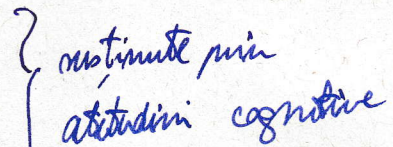 susținute prin
atitudini cognitive